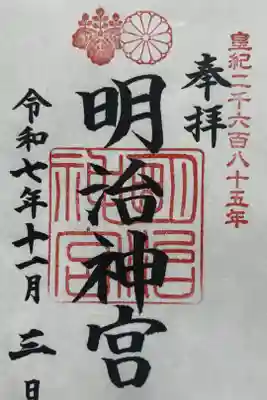 皇紀二千六百八十五年
奉拝
明治神宮
明治神宮
令和七年十一月三日